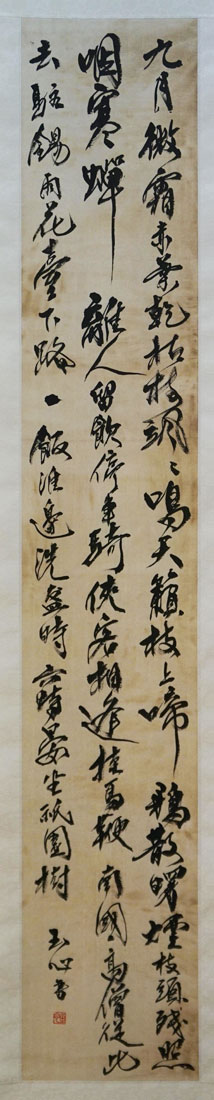 九月微霜赤葉乾枯枝頭〻鳴天籟枝上啼鴉散曙煙枝頭殘照
咽寒蟬離人留飲停車騎俠客相逢挂馬鞭南國高僧從此
去駐錫雨花臺下路一飯淮邊洗盋時六時晏坐祇園樹